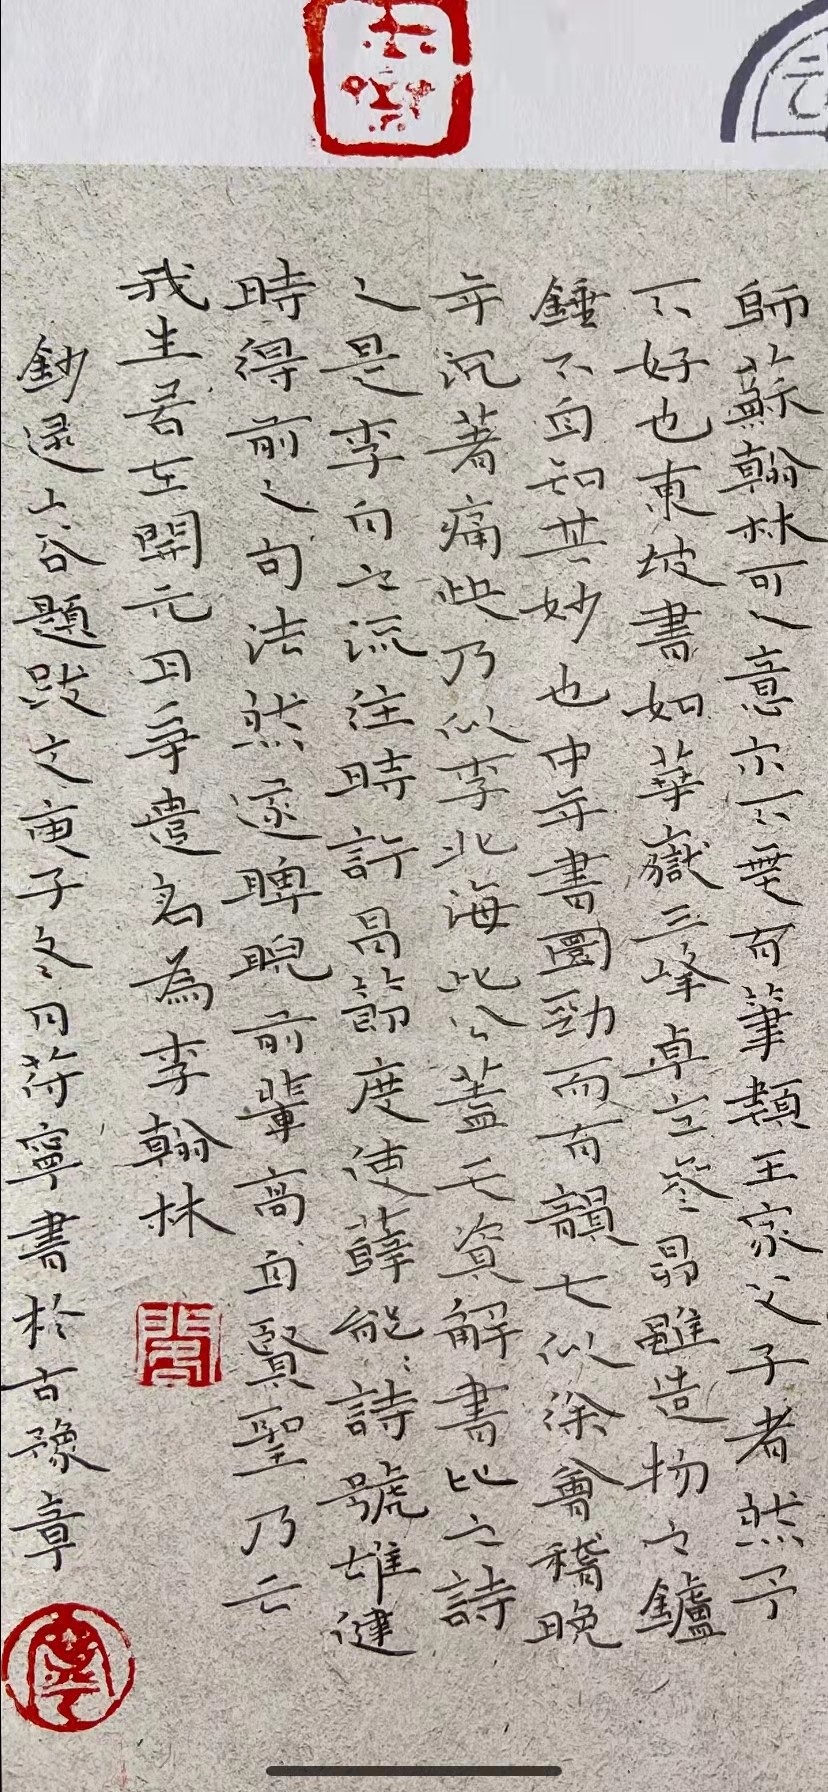 師蘇翰林可人意亦不無有筆類王家父子者然予
不好也東坡書如華嶽三峰卓立參昴雖造物之鑪
錘不自知其妙也中年書圓勁而有韻大似徐會稽晚
年沉著痛快乃似李北海此公蓋天資解書比之詩
人是李白之流往時許昌節度使薛能能詩號雄健
時得前人句法然遂睥睨前輩高自賢聖乃云
我生若在開元日爭遣名為李翰林
鈔逯山谷題跋文庚子冬月苻寧書於古豫章